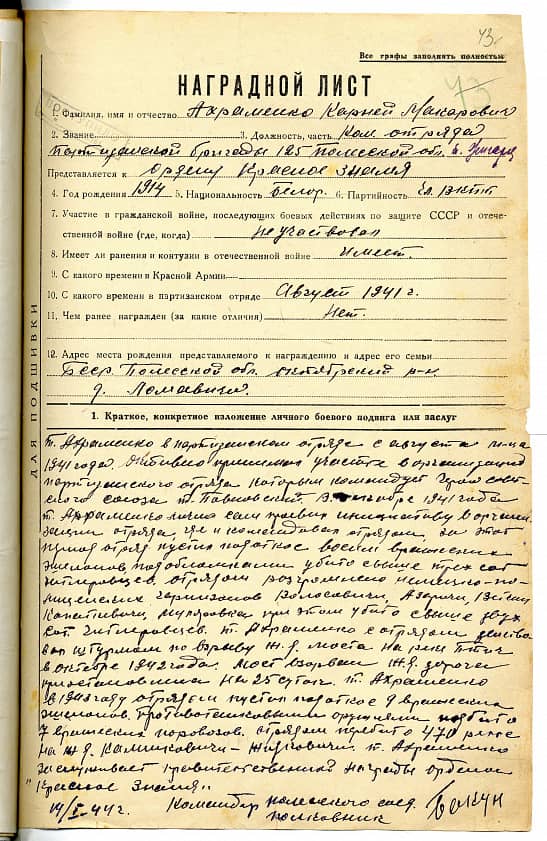 73.
Все графы заполнять полностью
73
НАГРАДНОЙ ЛИСТ
1. Фамилия, имя и отчество Ахраменко Карней Макарович
2. Звание 3. Должность, часть Ком. отряда
партизанской бригады 125 Полесской обл.
Представляется к ордену Красное знамя
4. Год рождения 1914 5. Национальность белор. 6. Партийность чл. ВКПб
7. Участие в гражданской войне, последующих боевых действиях по защите СССР и отече-
ственной войне (где, когда) не участвовал
8. Имеет ли ранения и контузии в отечественной войне имеет.
9. С какого времени в Красной Армии
10. С какого времени в партизанском отряде Август 1941 г.
11. Чем ранее награжден (за какие отличия) Нет.
12. Адрес места рождения представляемого к награждению и адрес его семьи
БССР. Полесской обл. октябрский р-н.
д.
ДЛЯ ПОДШИВКИ
1. Краткое, конкретное изложение личного боевого подвига или заслуг
т. Ахраменко в партизанском отряде с августа м-ца
1941 года. Активно принимал участие в организации
партизанского отряда которым командует Герой совет-
ского союза т. Павловский. В 1941 года
т. Ахраменко лично сам проявил инициативу в органи-
зации отряда, где и командовал отрядом, за этот
период отряд пустил подоткос восем вражеских
эшелонов, под обломками убито свыше трех сот
гитлеровцев, отрядом разгромлено немецко-по-
лицейских гарнизонов Волосовичи, Азаричи,
Копаткевичи, при этом убито свыше двух
сот гитлеровцев. т. Ахраменко с отрядом действо
вал штурмом по взрыву ж.д. моста на реки Птич
в октябре 1942 года. Мост взорван ж.д. дорога
приостановлена на 25 суток. т. Ахраменко
в 1943 году отрядом пустил подоткос 9 вражеских
эшелонов. Противотанковыми оружиями подбито
7 вражеских паровозов. отрядом перебито 470 рельс
на ж.д. Калинковичи - Житковичи. т. Ахраменко
заслуживает правительственной награды ордена
"Красное знамя"
14/I-44 г. Командир полесского соед.
полковник Бакун